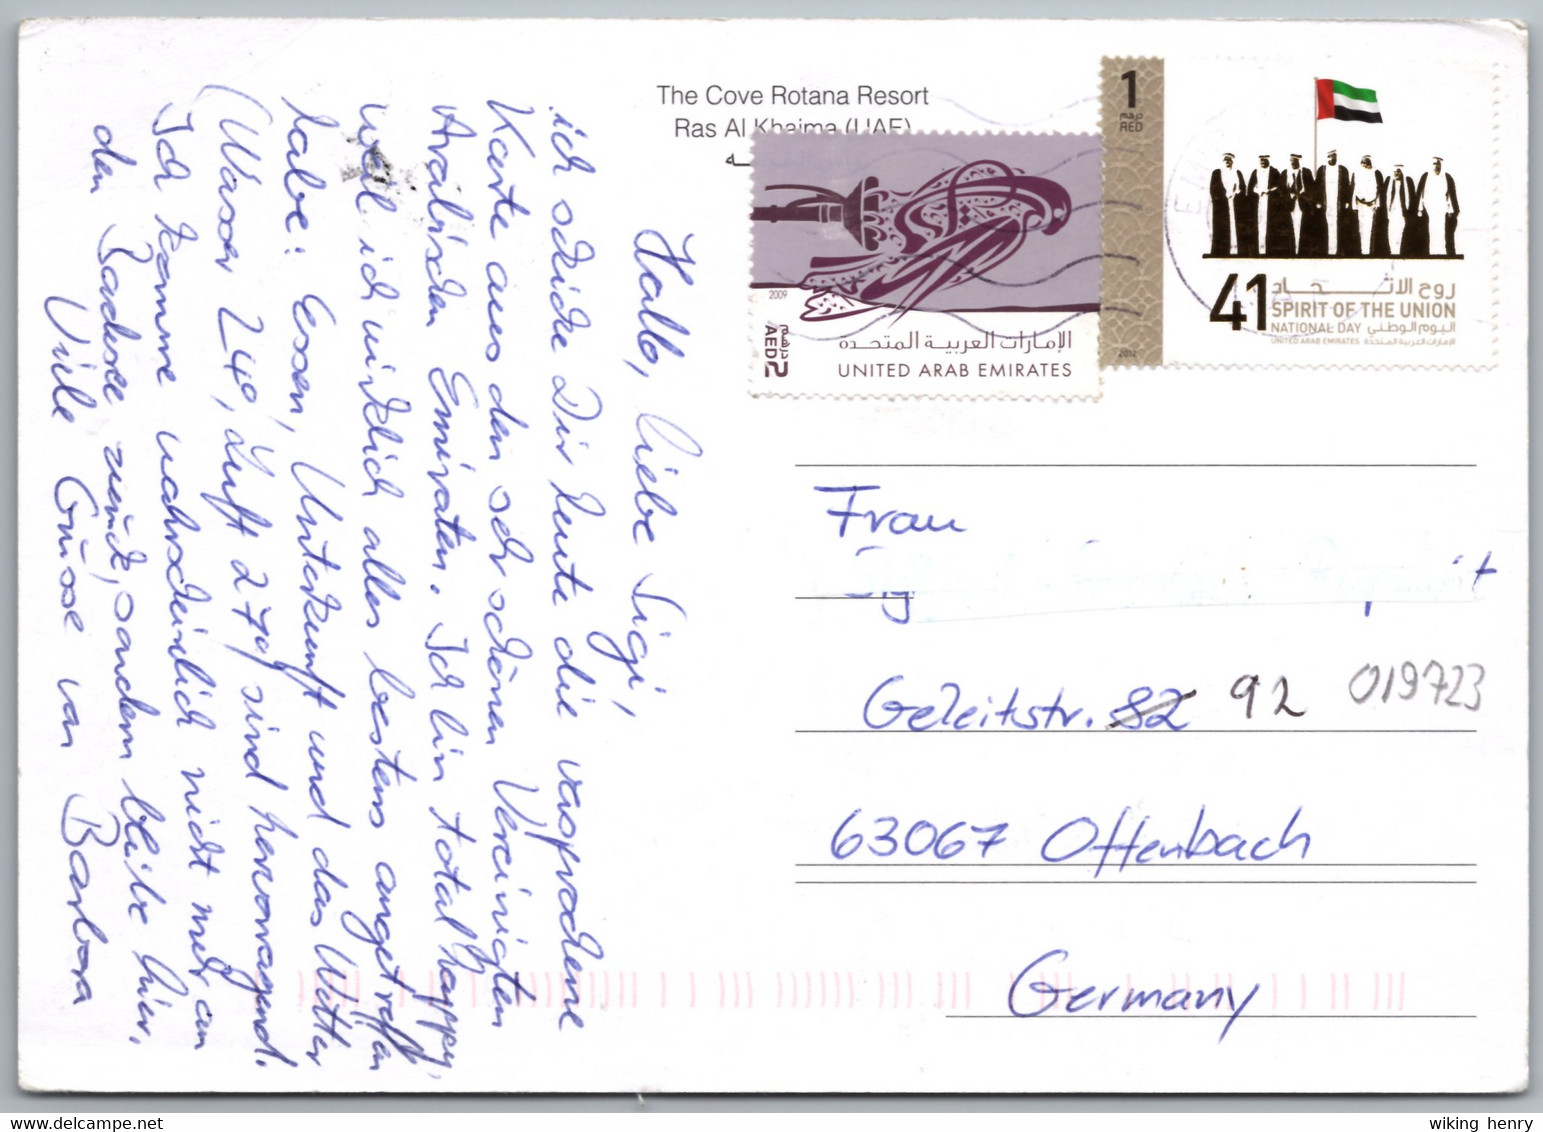 The Cove Rotana Resort
Ras Al Khaima (UAE)
Hallo, liebe Sigi,
ich schicke Dir heute die versprochene
Karte aus den sehr schönen Vereinigten
Arabischen Emiraten. Ich bin total happy,
weil ich wirklich alles bestens angetroffen
habe: Essen, Unterkunft und das Wetter
(Wasser 24°, Luft 27°) sind hervorragend.
Ich komme wahrscheinlich nicht mehr an
den Bodensee zurück, sondern bleibe hier.
Viele Grüsse von Barbara
2009
AED 2
درهم
الإمارات العربية المتحدة
UNITED ARAB EMIRATES
1
درهم
AED
2012
41
روح الاتحاد
SPIRIT OF THE UNION
NATIONAL DAY اليوم الوطني
UNITED ARAB EMIRATES الإمارات العربية المتحدة
Frau
Geleitstr. 82 92 019723
63067 Offenbach
Germany
wiking henry